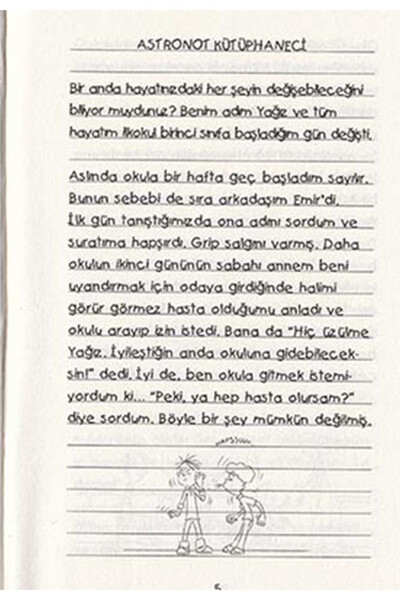 ASTRONOT KÜTÜPHANECİ
Bir anda hayatınızdaki her şeyin değişebileceğini
biliyor muydunuz? Benim adım Yağız ve tüm
hayatım ilkokul birinci sınıfa başladığım gün değişti.
Aslında okula bir hafta geç başladım sayılır.
Bunun sebebi de sıra arkadaşım Emir'di.
İlk gün tanıştığımızda ona adını sordum ve
suratıma hapşırdı. Grip salgını varmış. Daha
okulun ikinci gününün sabahı annem beni
uyandırmak için odaya girdiğinde halimi
görür görmez hasta olduğumu anladı ve
okulu arayıp izin istedi. Bana da "Hiç üzülme
Yağız. İyileştiğin anda okuluna gidebilecek-
sin!" dedi. İyi de, ben okula gitmek istemi-
yordum ki... "Peki, ya hep hasta olursam?"
diye sordum. Böyle bir şey mümkün değilmiş.